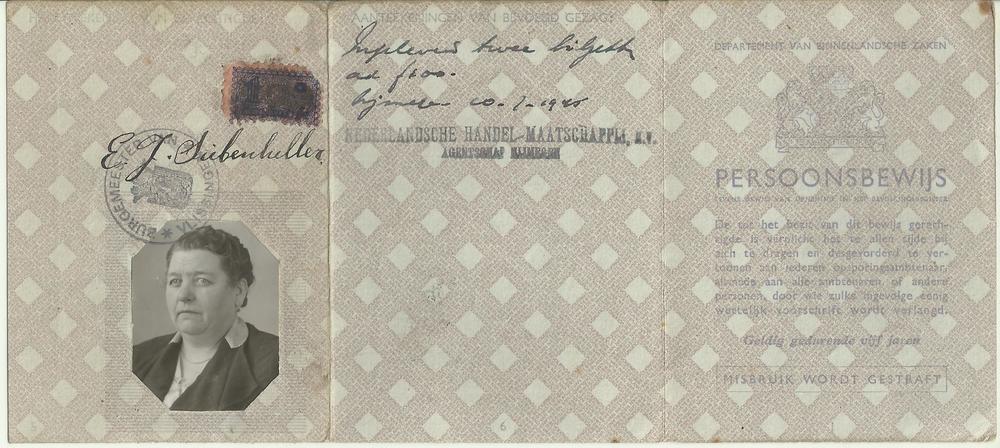 E J. Siebenheller
BURGEMEESTER VAN
5
AANTEEKENINGEN VAN BEVOEGD GEZAG:
Ingeleverd twee biljetten
ad f100.-
Nijmegen 10-7-1945
NEDERLANDSCHE HANDEL-MAATSCHAPPIJ, N.V.
AGENTSCHAP NIJMEGEN
6
DEPARTEMENT VAN BINNENLANDSCHE ZAKEN
PERSOONSBEWIJS
TEVENS BEWIJS VAN OPNEMING IN HET BEVOLKINGSREGISTER
De tot het bezit van dit bewijs gerech-
tigde is verplicht het te allen tijde bij
zich te dragen en desgevorderd te ver-
toonen aan iederen opsporingsambtenaar,
alsmede aan alle ambtenaren of andere
personen, door wie zulks ingevolge eenig
wettelijk voorschrift wordt verlangd.
Geldig gedurende vijf jaren
MISBRUIK WORDT GESTRAFT
1